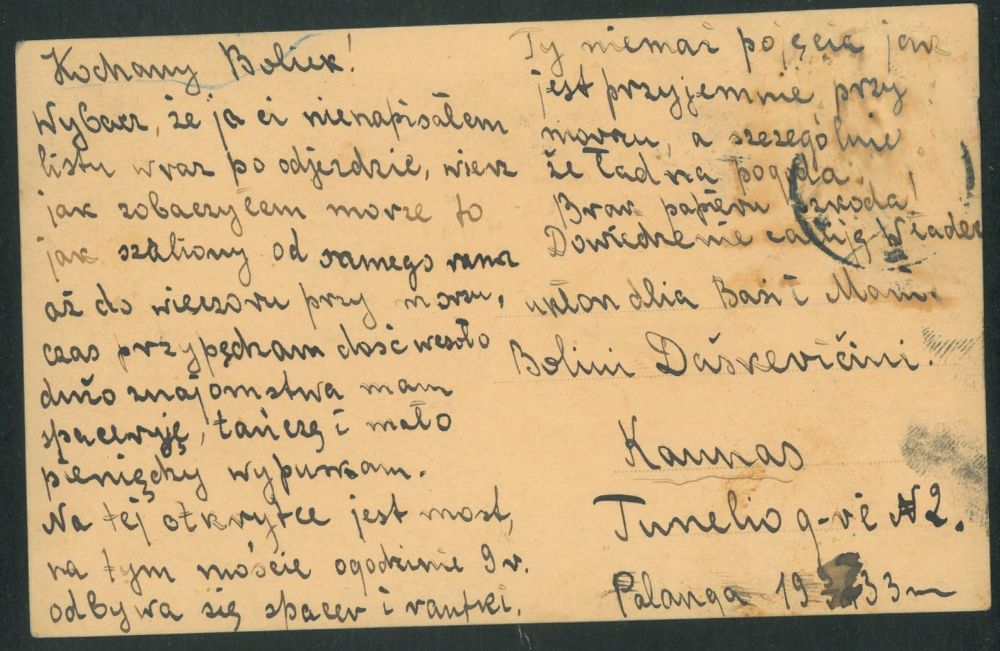 Kochany Boluk!
Wybacz, że ja ci nienapisałem
listu wraz po odjezdzie, wierz
jak zobaczyłem morze to
jak szaliony od samego rana
aż do wieczoru przy morzu,
czas przypęcham dość wesoło
dużo znajomstwa mam
spaceruję, tańczę i mało
pieniędzy wypuskam.
Na tej otkrytce jest most,
na tym moście ogodzinie 9 r.
odbywa się spacer i rantki.
Ty niemaż pojęcia jak
jest przyjemnie przy
morzu, a szczególnie
że ładna pogoda
Brak papieru szkoda!
Dowiedzenie całuję Władek
ukłon dlia Basi i Mani.
Bolini Daškevičini.
Kaunas
Tunelio g-vė № 2.
Palanga 19 33 m